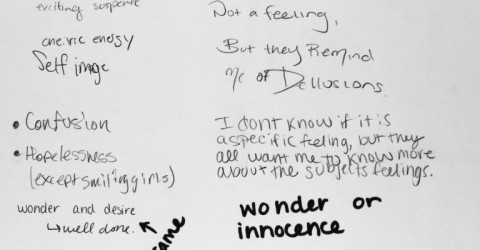 exciting suspense
oneiric energy
Self image
• Confusion
• Hopelessness
(except smiling girls)
wonder and desire
↳ well done.
same
Not a feeling,
But they Remind
me of Dellusions
I dont know if it is
a specific feeling, but they
all want me to know more
about the subjects feelings.
wonder or
innocence